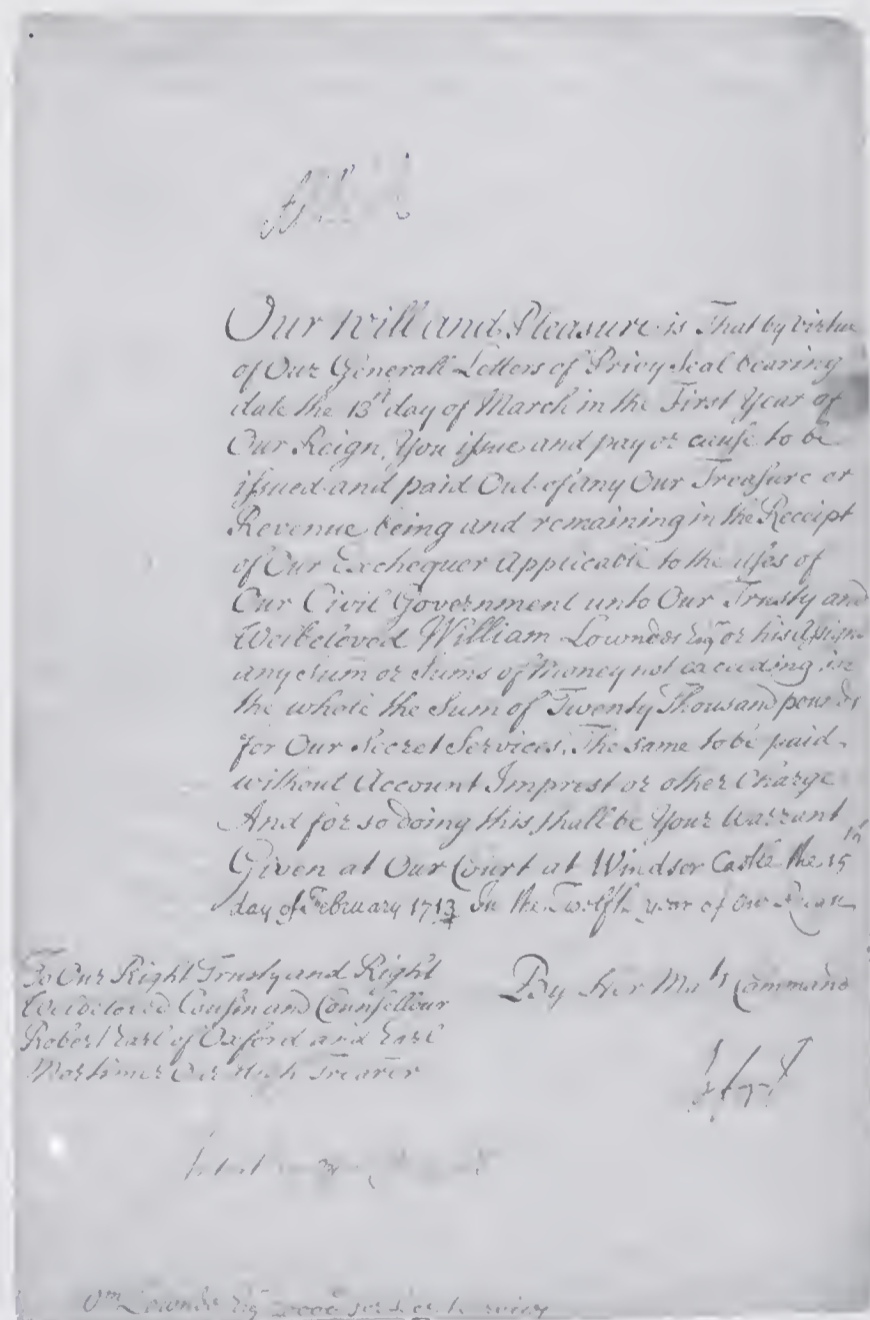 Our Will and Pleasure is That by virtue
of Our Generall Letters of Privy Seal bearing
date the 13th day of March in the First Year of
Our Reign, You issue and pay or cause to be
issued and paid Out of any Our Treasure or
Revenue being and remaining in the Receipt
of Our Exchequer Applicable to the uses of
Our Civil Government unto Our Trusty and
Welbeloved William Lowndes Esq or his Assigns
any Sum or Sums of Money not exceeding in
the whole the Sum of Twenty Thousand pounds
for Our Secret Services, The same to be paid
without Account Imprest or other Charge
And for so doing this shall be Your Warrant
Given at Our Court at Windsor Castle the 15th
day of February 1713 In the Twelfth year of Our Reign
To Our Right Trusty and Right
Welbeloved Cousin and Counsellour
Robert Earl of Oxford and Earl
Mortimer Our High Trearer
By Her Mats Command
Wm Lowndes Esq